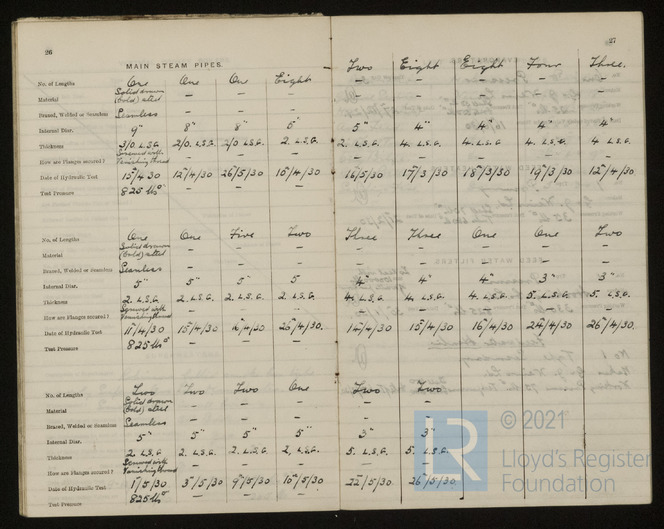 26
27
MAIN STEAM PIPES.
No. of Lengths One One One Eight Two Eight Eight Four Three.
Material Solid drawn (Cold) steel — — — — — — — —
Brazed, Welded or Seamless Seamless — — — — — — — —
Internal Diar. 9" 8" 8" 6" 5" 4" 4" 4" 4"
Thickness 3/0. L.S.G. 2/0. L.S.G. 2/0 L.S.G. 2. L.S.G. 2. L.S.G. 4. L.S.G. 4. L.S.G. 4. L.S.G. 4 L.S.G.
How are Flanges secured? Screwed with Vanishing thread — — — — — — — —
Date of Hydraulic Test 15/4/30 12/4/30 26/5/30 10/4/30 16/5/30 17/3/30 18/3/30 19/3/30 12/4/30
Test Pressure 825 lbs — — — — — — — —
No. of Lengths One One Five Two Three Three One One Two
Material Solid drawn (Cold) steel — — — — — — — —
Brazed, Welded or Seamless Seamless — — — — — — — —
Internal Diar. 5" 5" 5" 5" 4" 4" 4" 3" 3"
Thickness 2. L.S.G. 2. L.S.G. 2. L.S.G. 2. L.S.G. 4. L.S.G. 4. L.S.G. 4. L.S.G. 5. L.S.G. 5. L.S.G.
How are Flanges secured? Screwed with Vanishing thread — — — — — — — —
Date of Hydraulic Test 11/4/30 15/4/30 16/4/30 26/4/30. 14/4/30 15/4/30 16/4/30 24/4/30 26/4/30.
Test Pressure 825 lbs — — — — — — — —
No. of Lengths Two Two Two One Two Two
Material Solid drawn (Cold) steel — — — — —
Brazed, Welded or Seamless Seamless — — — — —
Internal Diar. 5" 5" 5" 5" 3" 3"
Thickness 2. L.S.G. 2. L.S.G. 2. L.S.G. 2. L.S.G. 5. L.S.G. 5. L.S.G.
How are Flanges secured? Screwed with Vanishing thread — — — — —
Date of Hydraulic Test 1/5/30 3/5/30 9/5/30 10/5/30 22/5/30 26/5/30.
Test Pressure 825 lbs — — — — —
© 2021
LR
Lloyd's Register
Foundation